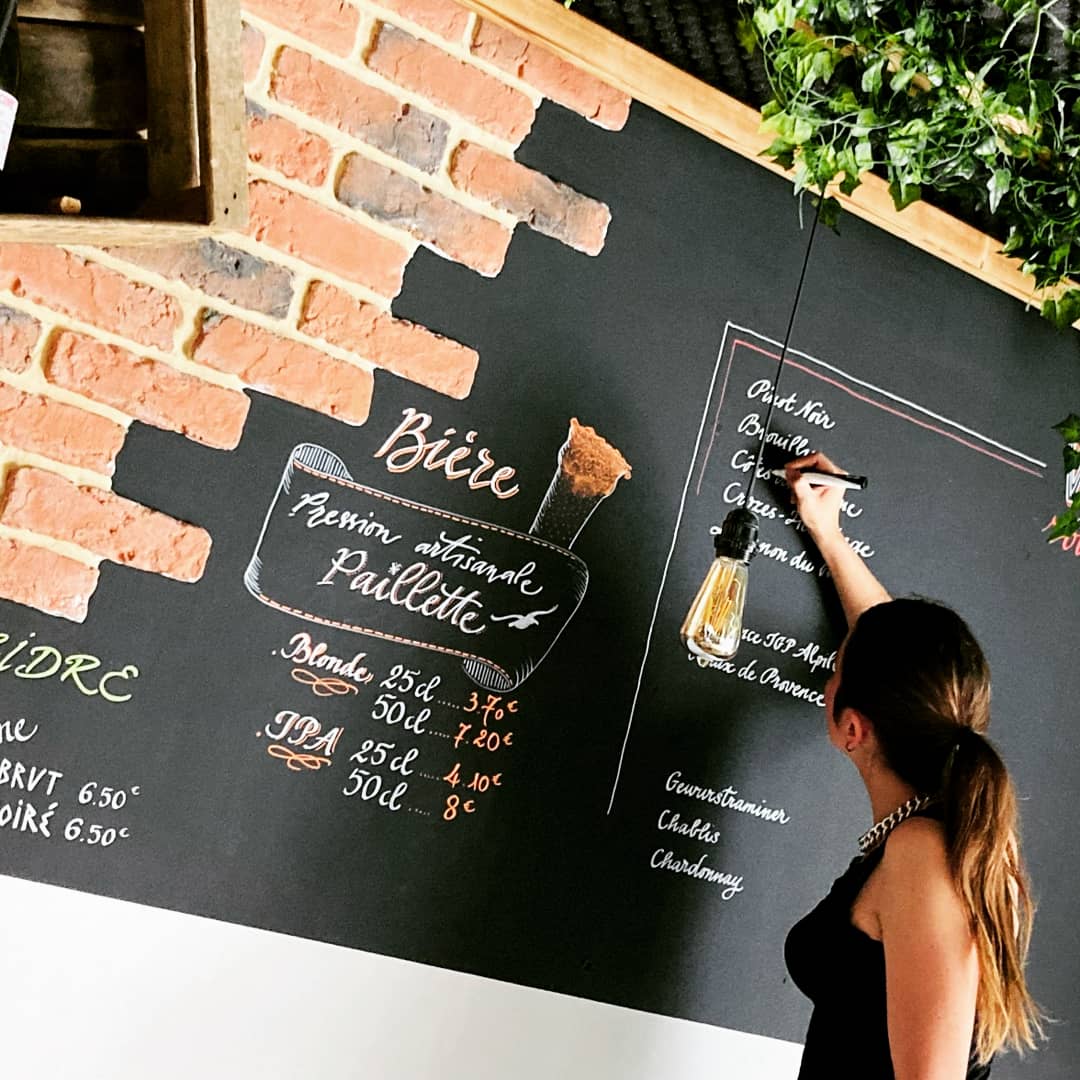 Bière
Pression artisanale
Paillette
. Blonde 25cl ..... 3.70€
50cl ..... 7.20€
. IPA 25cl ..... 4.10€
50cl ..... 8€
BRUT 6.50€
6.50€
Pinot Noir
Brouilly
Crozes-
non du
IGP Alpil
de Provence
Gewurstraminer
Chablis
Chardonnay